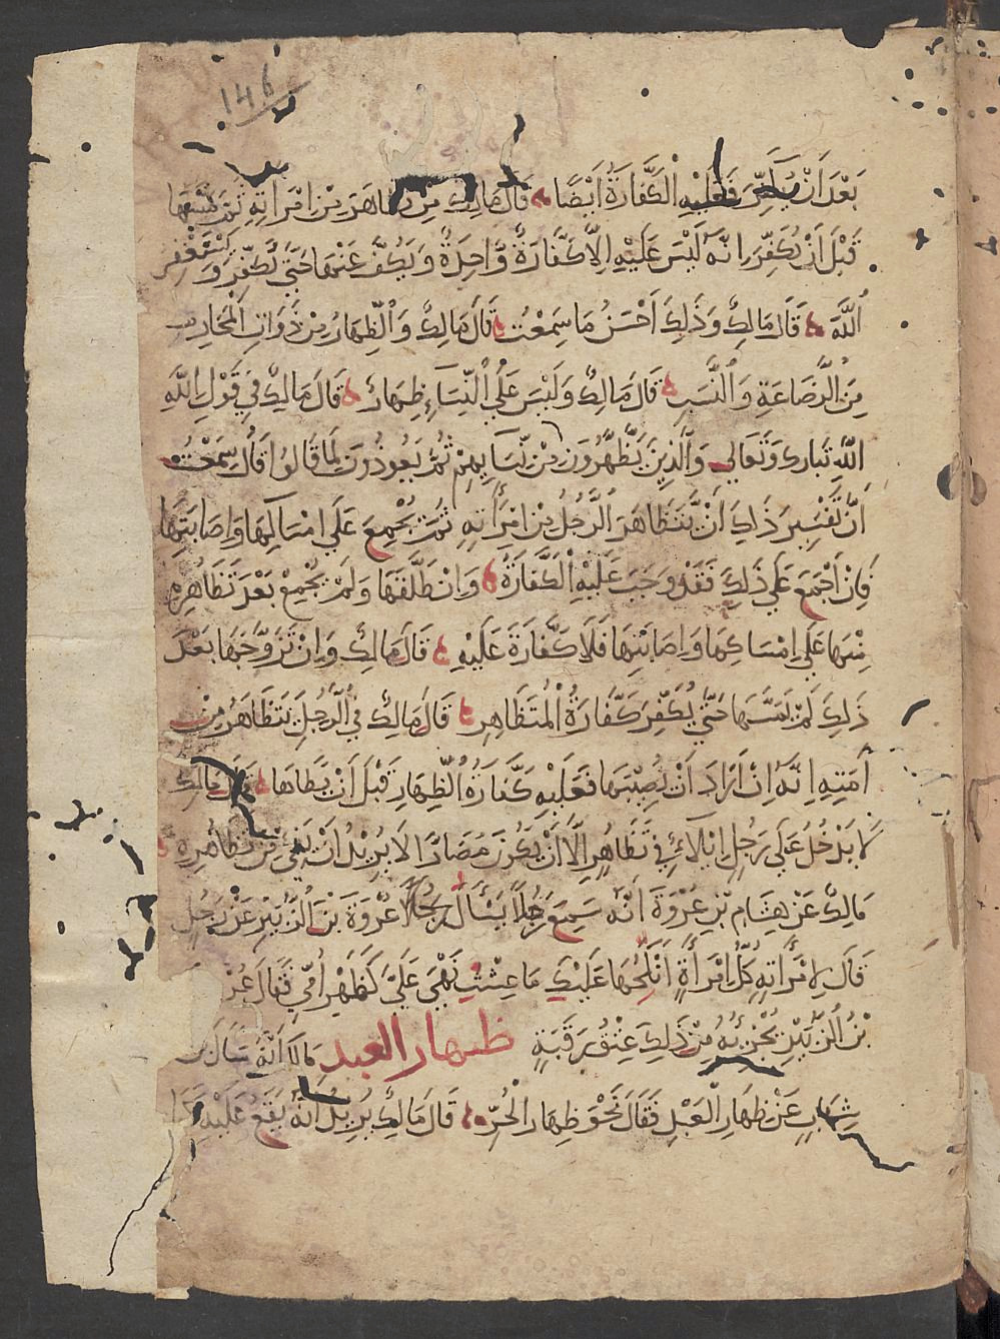 146
بَعْدَ اَنْ يُكَفِّرَ فَعَلَيْهِ الْكَفَّارَةُ اَيْضًا قَالَ مَالِكٌ مَنْ تظَاهَرَ مِنِ امْرَاَتِهِ ثُمَّ مَسَّهَا
قَبْلَ اَنْ يُكَفِّرَ اِنَّهُ لَيْسَ عَلَيْهِ اِلَّا كَفَّارَةٌ وَّاحِدَةٌ وَيَكُفُّ عَنْهَا حَتَّي يُكَفِّرَ وَيَسْتَغْفِر
اللَّهَ قَالَ مَالِكٌ وَذَلِكَ اَحْسَنُ مَا سَمِعْتُ قَالَ مَالِكٌ وَالظِّهَارُ مِنْ ذَوَاتِ الْمَحَارِمِ
مِنَ الرَّضَاعَةِ وَالنَّسَبِ قَالَ مَالِكٌ وَلَيْسَ عَلَي النِّسَآءِ ظِهَارٌ قَالَ مَالِكٌ فِي قَوْلِ اللَّهِ
اللَّهِ تَبَارك وَتَعَالي وَالَّذِينَ يَظَّهَّرُونَ مِنْ نِّسَآيِهِمْ ثُمَّ يَعُودُونَ لِمَا قَالُوا قَالَ سَمِعْتُ
اَنَّ تَفْسِيرَ ذَلِكَ اَنْ يَتَظَاهَرَ الرَّجُلُ مِنِ امْرَأَتِهِ ثُمَّ يُجْمِعَ عَلَي امْسَاكِهَا وَاِصَابَتِهَا
فَاِنْ اَجْمَعَ عَلَي ذَلِكَ فَقَدْ وَجَبَ عَلَيْهِ الْكَفَّارَةُ وَاِنْ طَلَّقَهَا وَلَمْ يُجْمِعْ بَعْدَ تَظَاهُرِهِ
مِنْهَا عَلَي اِمْسَاكِهَا وَاِصَابَتِهَا فَلَا كَفَّارَةَ عَلَيْهِ قَالَ مَالِكٌ وَاِنْ تَزَوَّجَهَا بَعْدَ
ذَلِكَ لَمْ يَمَسَّهَا حَتَّي يُكَفِّرَ كَفَّارَةَ الْمُتَظَاهِرِ قَالَ مَالِكٌ فِي الرَّجُلِ يَتَظَاهَرُ مِنْ
اَمَتِهِ اِنَّهُ اِنْ اَرَادَ اَنْ يُصِيْبَهَا فَعَلَيْهِ كَفَّارَةُ الظِّهَارِ قَبْلَ اَنْ يَطَاهَا قَالَ مَالِك
لَا يَدْخُلُ عَلَي رَجُلٍ اِيْلَآءٌ فِي تَظَاهُرٍ اِلَّا اَنْ يَكُونَ مُضَارًّا لَا يُرِيْدُ اَنْ يَفِيْ مِنْ تَظَاهُرِهِ
مَالِكٌ عَنْ هِشَامِ بْنِ عُرْوَةَ اَنَّهُ سَمِعَ رَجُلًا يَسْأَلُ عُرْوَةَ بْنَ الزُّبَيْرِ عَنْ رَجُلٍ
قَالَ لِامْرَأَتِهِ كُلُّ امْرَأَةٍ اَنْكِحُهَا عَلَيْكِ مَا عِشْتِ فَهْيَ عَلَيَّ كَظَهْرِ اُمِّي فَقَالَ
بْنُ الزُّبَيْرِ يُجْزِئُهُ مِنْ ذَلِكَ عِتْقُ رَقَبَةٍ ظهار العبد مَالك اَنَّهُ سَاَلَ
شِهَابٍ عَنْ ظِهَارِ الْعَبْدِ فَقَالَ نَحْوَ ظِهَارِ الْحُرِّ قَالَ مَالِكٌ يُرِيدُ اَنَّهُ يَقَعُ عَلَيْهِ كَمَا